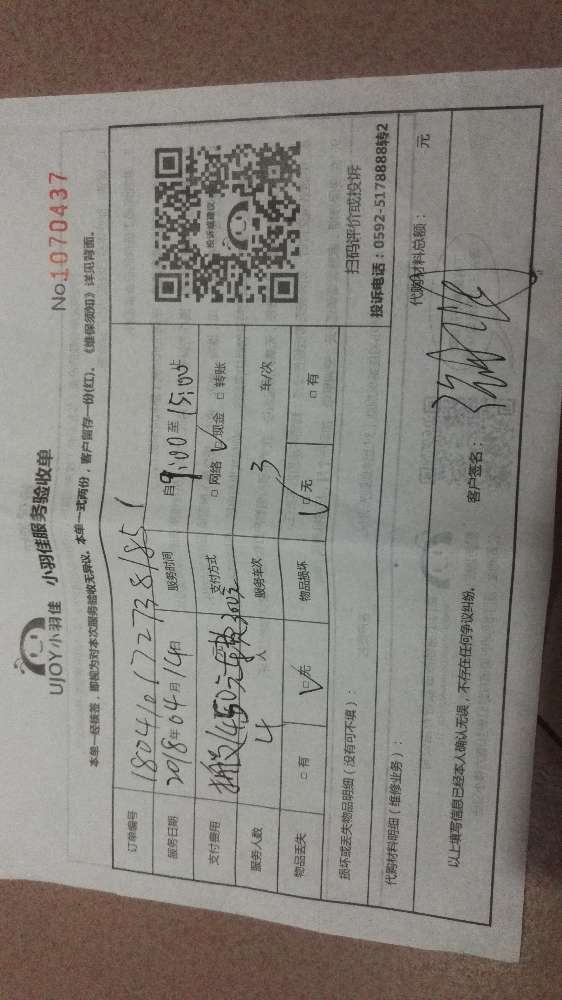 UJOY小羽佳 小羽佳服务验收单
No.1070437
本单一经核签,即视为对本次服务验收无异议。本单一式两份,客户留存一份(红)。《维保须知》详见背面。
订单编号 180410172738185 1
服务日期 2018年04月14日 服务时间 自9:00至15:00止
支付费用 搬运450元 支付方式 □网络 ☑现金 □转账
服务人数 4 人 服务车次 3 车/次
物品丢失 □有 ☑无 物品损坏 ☑无 □有
投诉或建议
扫码评价或投诉
投诉电话:0592-5178888转2
损坏或丢失物品明细(没有可不填):
代购材料明细(维修业务): 代购材料总额: 元
以上填写信息已经本人确认无误,不存在任何争议纠纷。 客户签名: